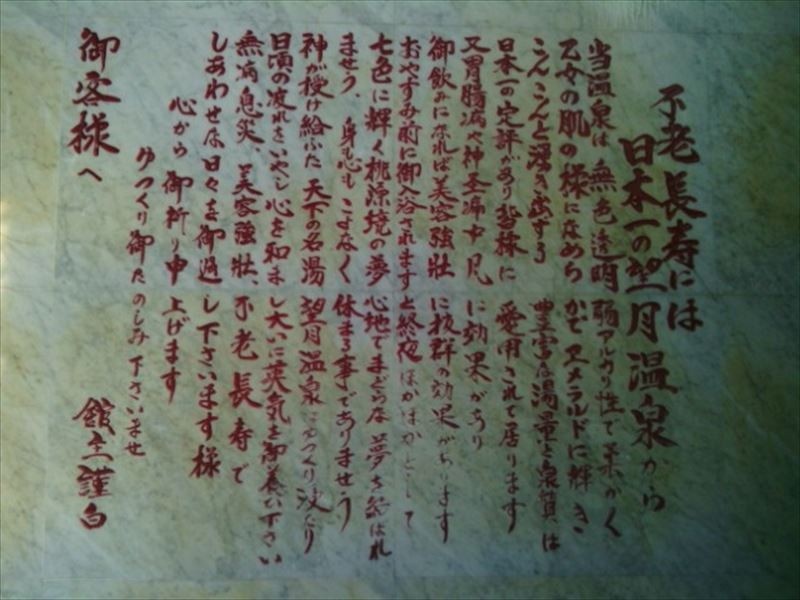 不老長寿には
日本一の望月温泉から
当温泉は 無色透明 弱アルカリ性で 柔かく
乙女の肌の様になめらかで エメラルドに輝き
こんこんと湧き出する 豊富な湯量と泉質は
日本一の定評があり 皆様に 愛用されて居ります
又胃腸病や神圣痛中風に効果があり
御飲みになれば美容強壮に抜群の効果があります
おやすみ前に御入浴されますと終夜ほかほかとして
七色に輝く桃源境の夢心地でまどらな 夢も結ばれ
ませう、身心もこよなく 休まる事でありませう
神が授け給ふた 天下の名湯 望月温泉にゆっくり浸たり
日頃の疲れをいやし心を和まし大いに英気を御養い下さい
無病息災、美容強壮、不老長寿で
しあわせな日々を御過し下さいます様
心から 御祈り申上げます
ゆっくり御たのしみ下さいませ
御客様へ 館主謹白